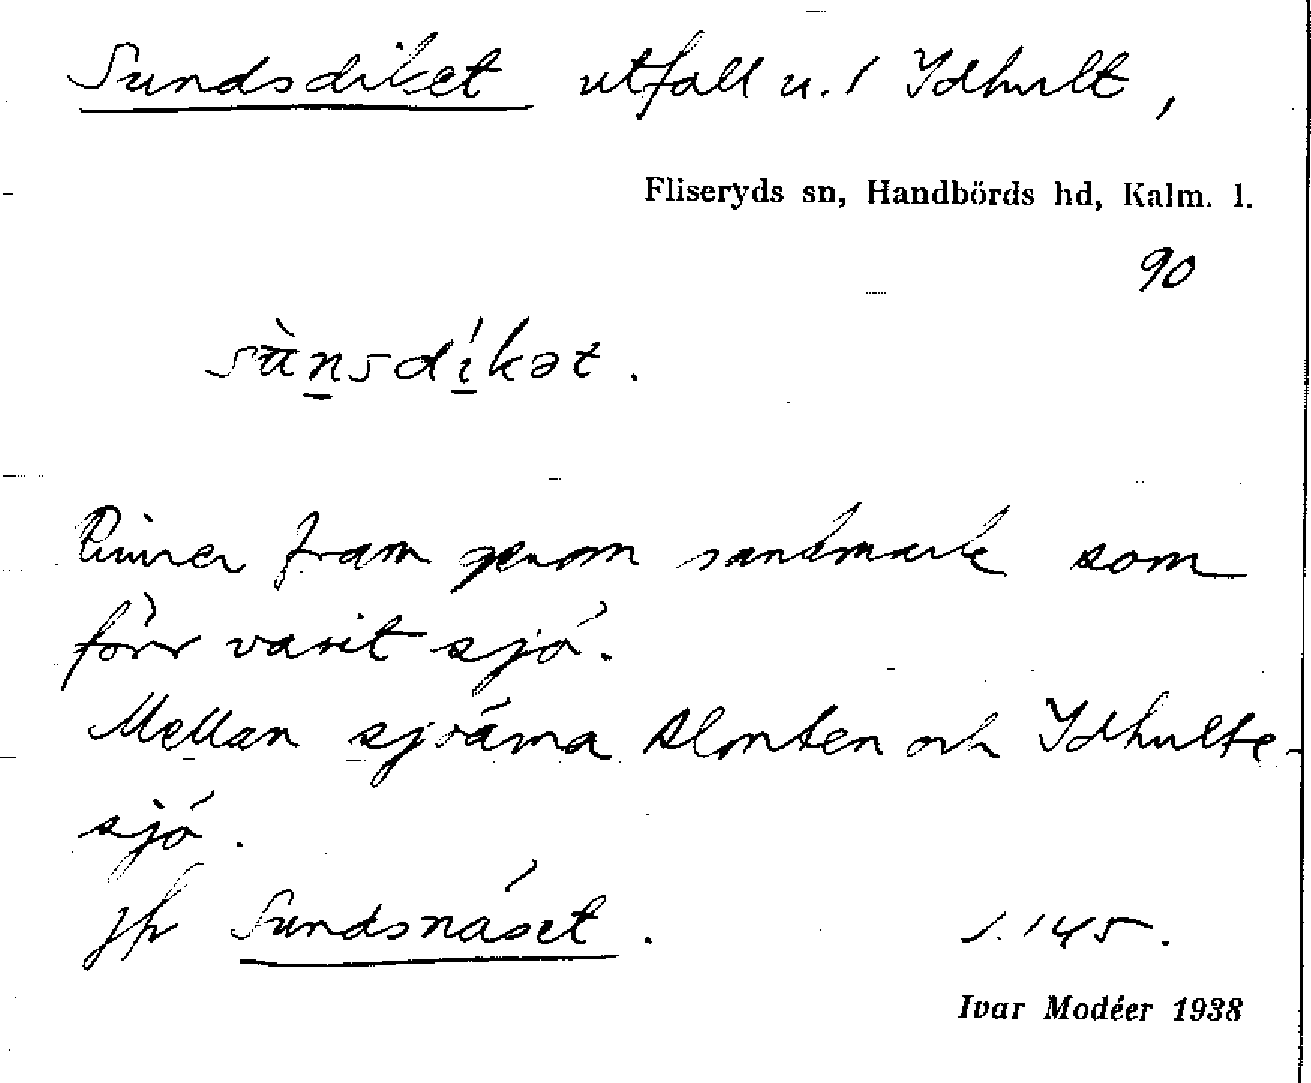 Sundsdiket utfall u. / Idhult,
Fliseryds sn, Handbörds hd, Kalm. l.
90
sùnsdíkət.
Rinner fram genom sandmark som
förr varit sjö.
Mellan sjöarna Alonten och Idhulte-
sjö.
jfr Sundsnäset. s. 145.
Ivar Modéer 1938